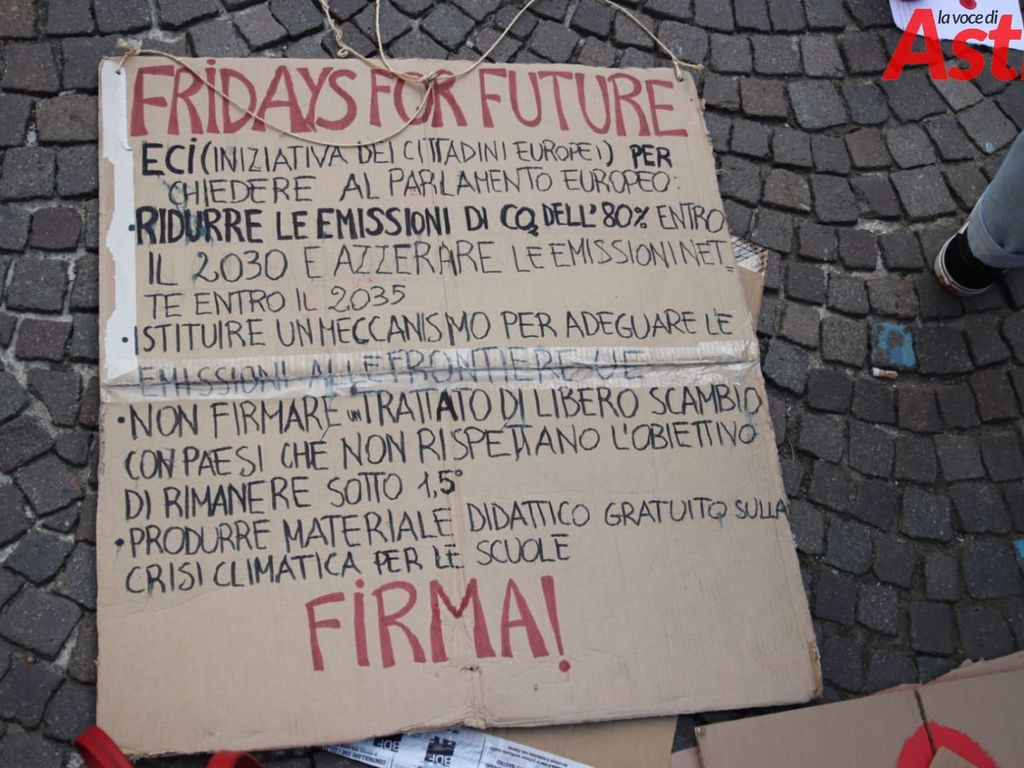 la voce di
Ast
FRIDAYS FOR FUTURE
ECI (INIZIATIVA DEI CITTADINI EUROPEI) PER
CHIEDERE AL PARLAMENTO EUROPEO:
•RIDURRE LE EMISSIONI DI CO2 DELL'80% ENTRO
IL 2030 E AZZERARE LE EMISSIONI NET-
TE ENTRO IL 2035
•ISTITUIRE UN MECCANISMO PER ADEGUARE LE
EMISSIONI ALLE FRONTIERE UE
•NON FIRMARE UN TRATTATO DI LIBERO SCAMBIO
CON PAESI CHE NON RISPETTANO L'OBIETTIVO
DI RIMANERE SOTTO 1,5°
•PRODURRE MATERIALE DIDATTICO GRATUITO SULLA
CRISI CLIMATICA PER LE SCUOLE
FIRMA!